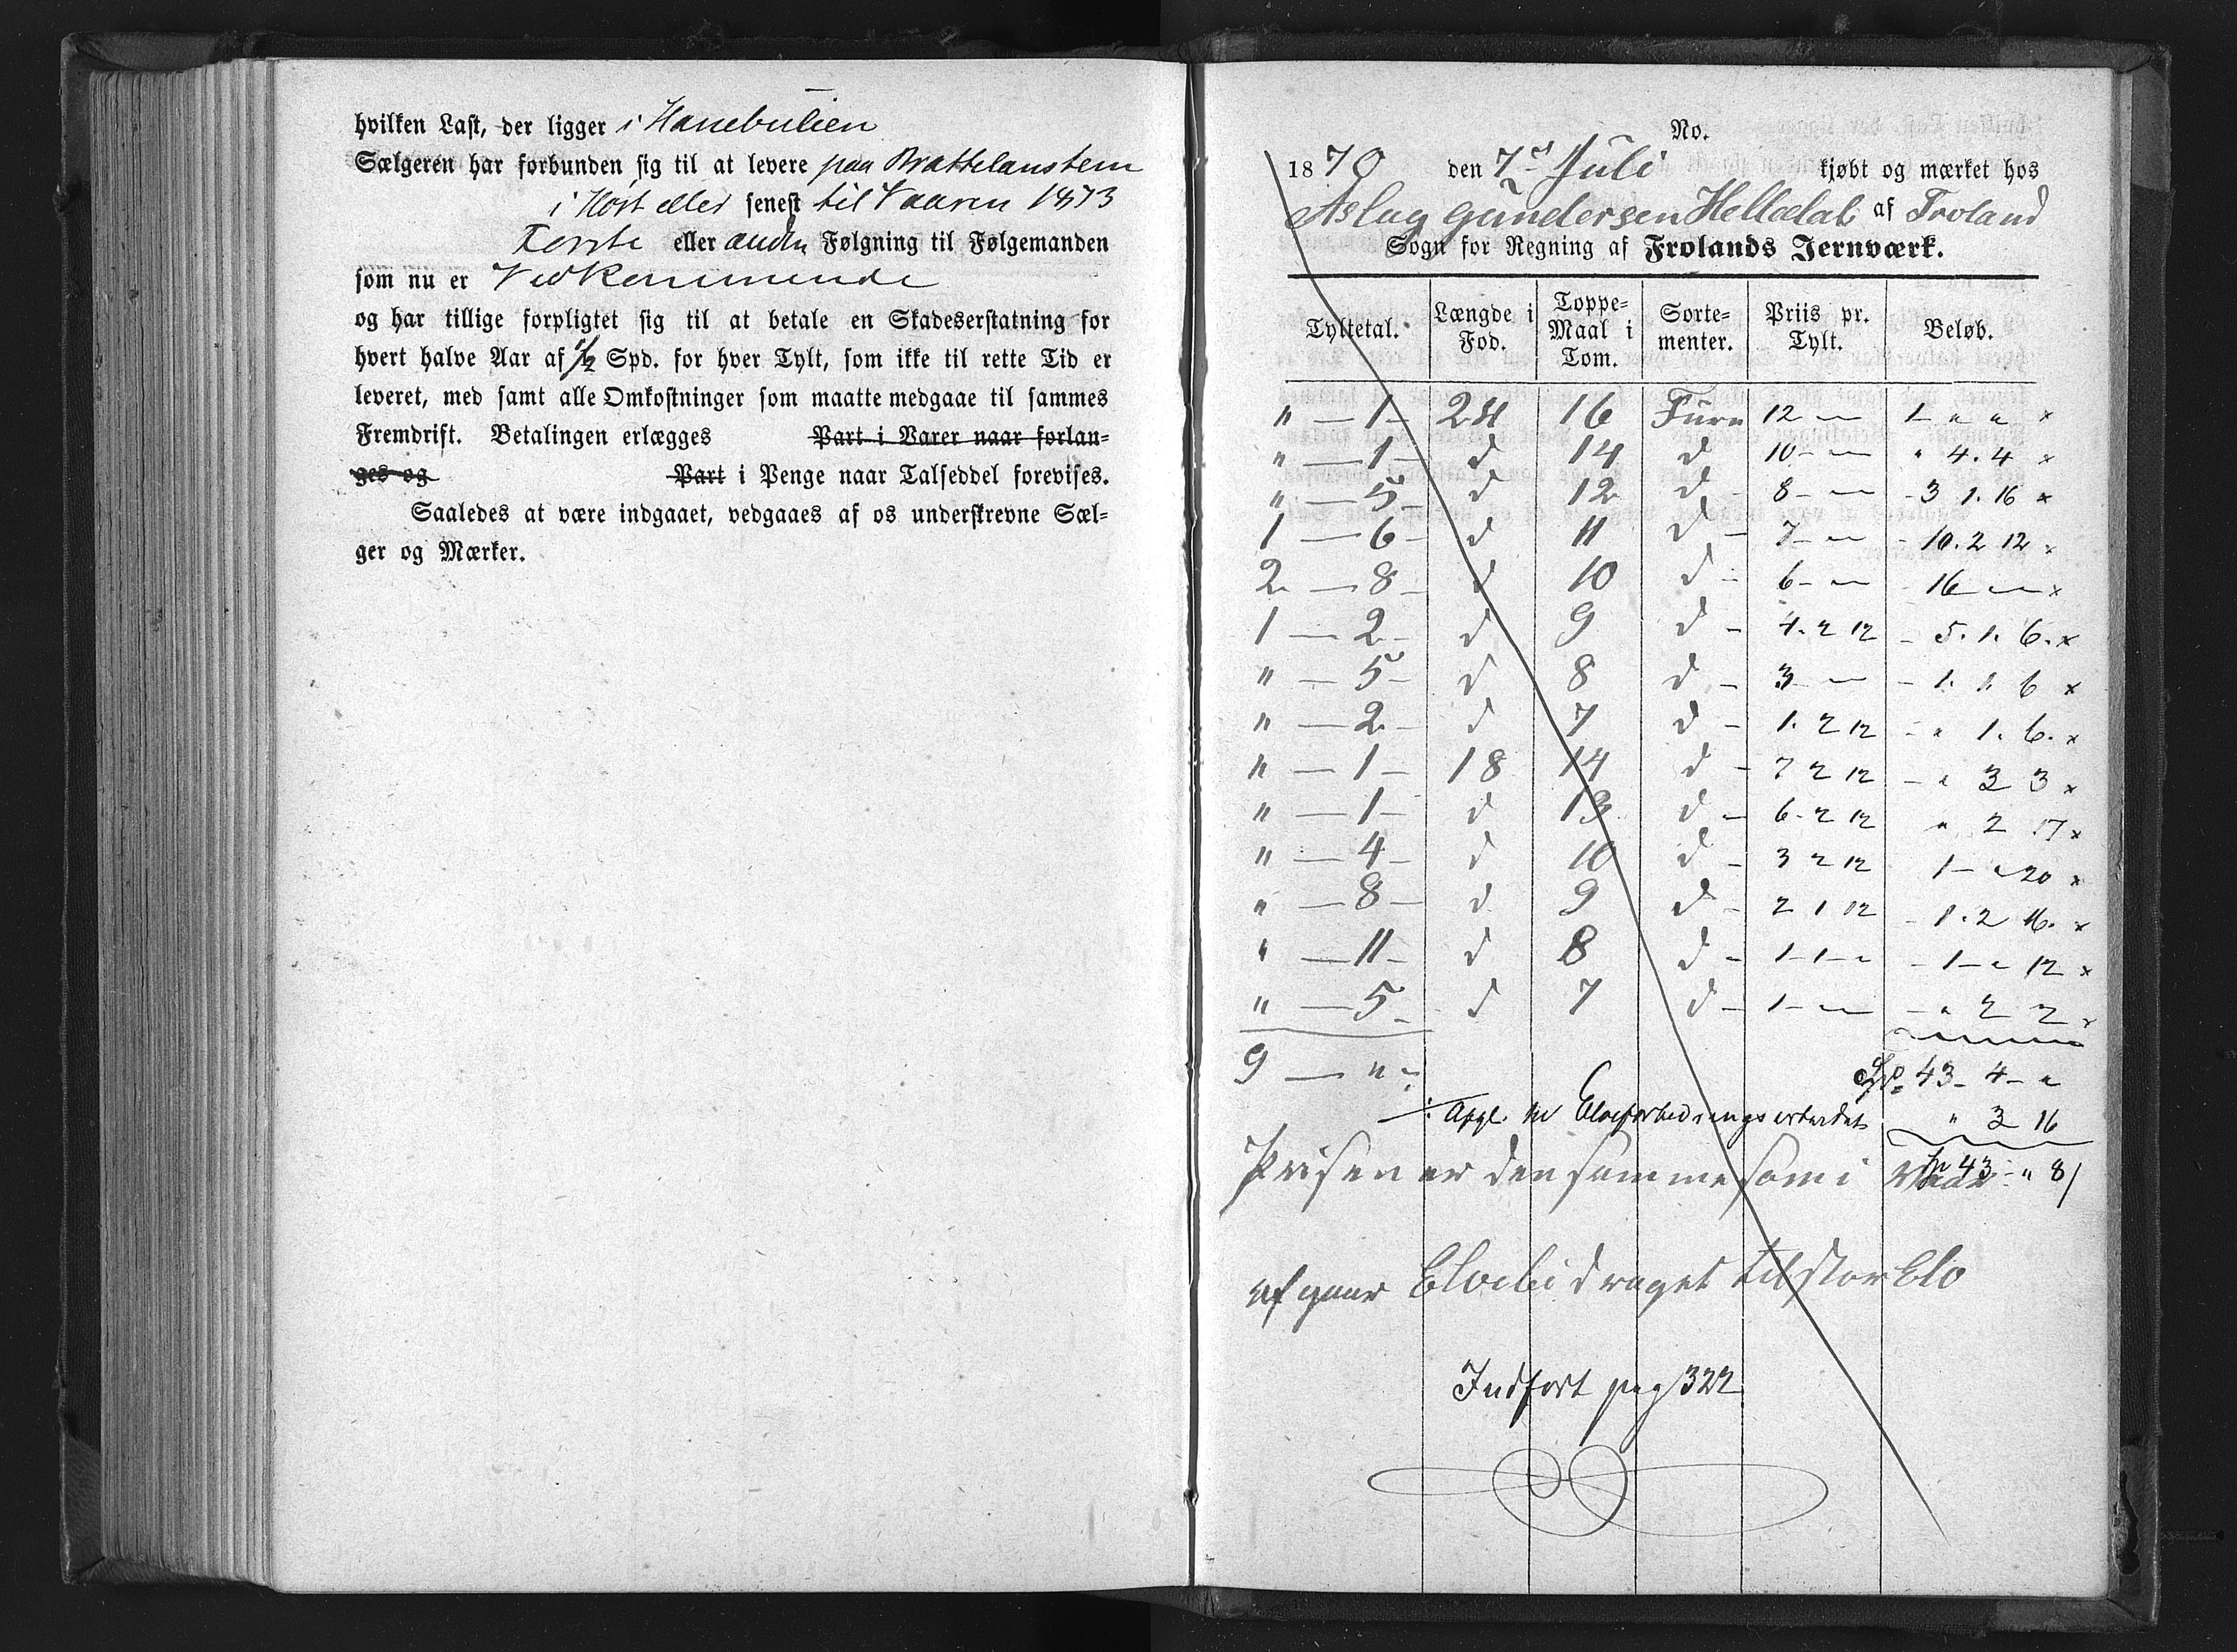 hvilken Last, der ligger i Hanebulien
Sælgeren har forbunden sig til at levere paa Brattelanstem
i Høst eller senest til Vaaren 1873
Forste eller anden Følgning til Følgemanden
som nu er Vedkommende
og har tillige forpligtet sig til at betale en Skadeserstatning for
hvert halve Aar af 1/2 Spd. for hver Tylt, som ikke til rette Tid er
leveret, med samt alle Omkostninger som maatte medgaae til sammes
Fremdrift. Betalingen erlægges Part i Varer naar forlan-
ges og Part i Penge naar Talseddel forevises.
Saaledes at være indgaaet, vedgaaes af os underskrevne Sæl-
ger og Mærker.
No.
1870 den 7d Juli kjøbt og mærket hos
Aslag Gundersen Helledal af Froland
Sogn for Regning af Frolands Jernværk.
Tyltetal. Længde i Fod. Toppe-Maal i Tom. Sorte-menter. Priis pr. Tylt. Beløb.
" — 1 - 24 16 Furu 12 — 1 - " " ×
" — 1 - d 14 d 10 - — " 4. 4 ×
" — 5 - d 12 d - 8 - — - 3 1. 16 ×
1 — 6 - d 11 d - 7 - — - 10. 2 12 ×
2 — 8 - d 10 d - 6 - — - 16 — ×
1 — 2 - d 9 d - 4. 2 12 - 5. 1. 6. ×
" — 5 - d 8 d - 3 - — - 1. 1. 6 ×
" — 2 - d 7 d - 1. 2 12 - " 1. 6. ×
" — 1 - 18 14 d - 7 2 12 - " 3 3 ×
" — 1 - d 13 d - 6 - 2 12 " 2 17 ×
" — 4 - d 10 d - 3 2 12 1 - " 20 ×
" — 8 - d 9 d - 2 1 12 - 1. 2 16. ×
" — 11 - d 8 d - 1 - 1 - " - 1 - " 12 ×
" — 5 - d 7 d - 1 - — - " 2 2 ×
9 — " - Spd 43 - 4 - "
Elveforbedringsarbeidet " 3 16
Prisen er den samme som i 43 - " 8
afgaar Elvebidraget til stor Elv
Indført pag 322